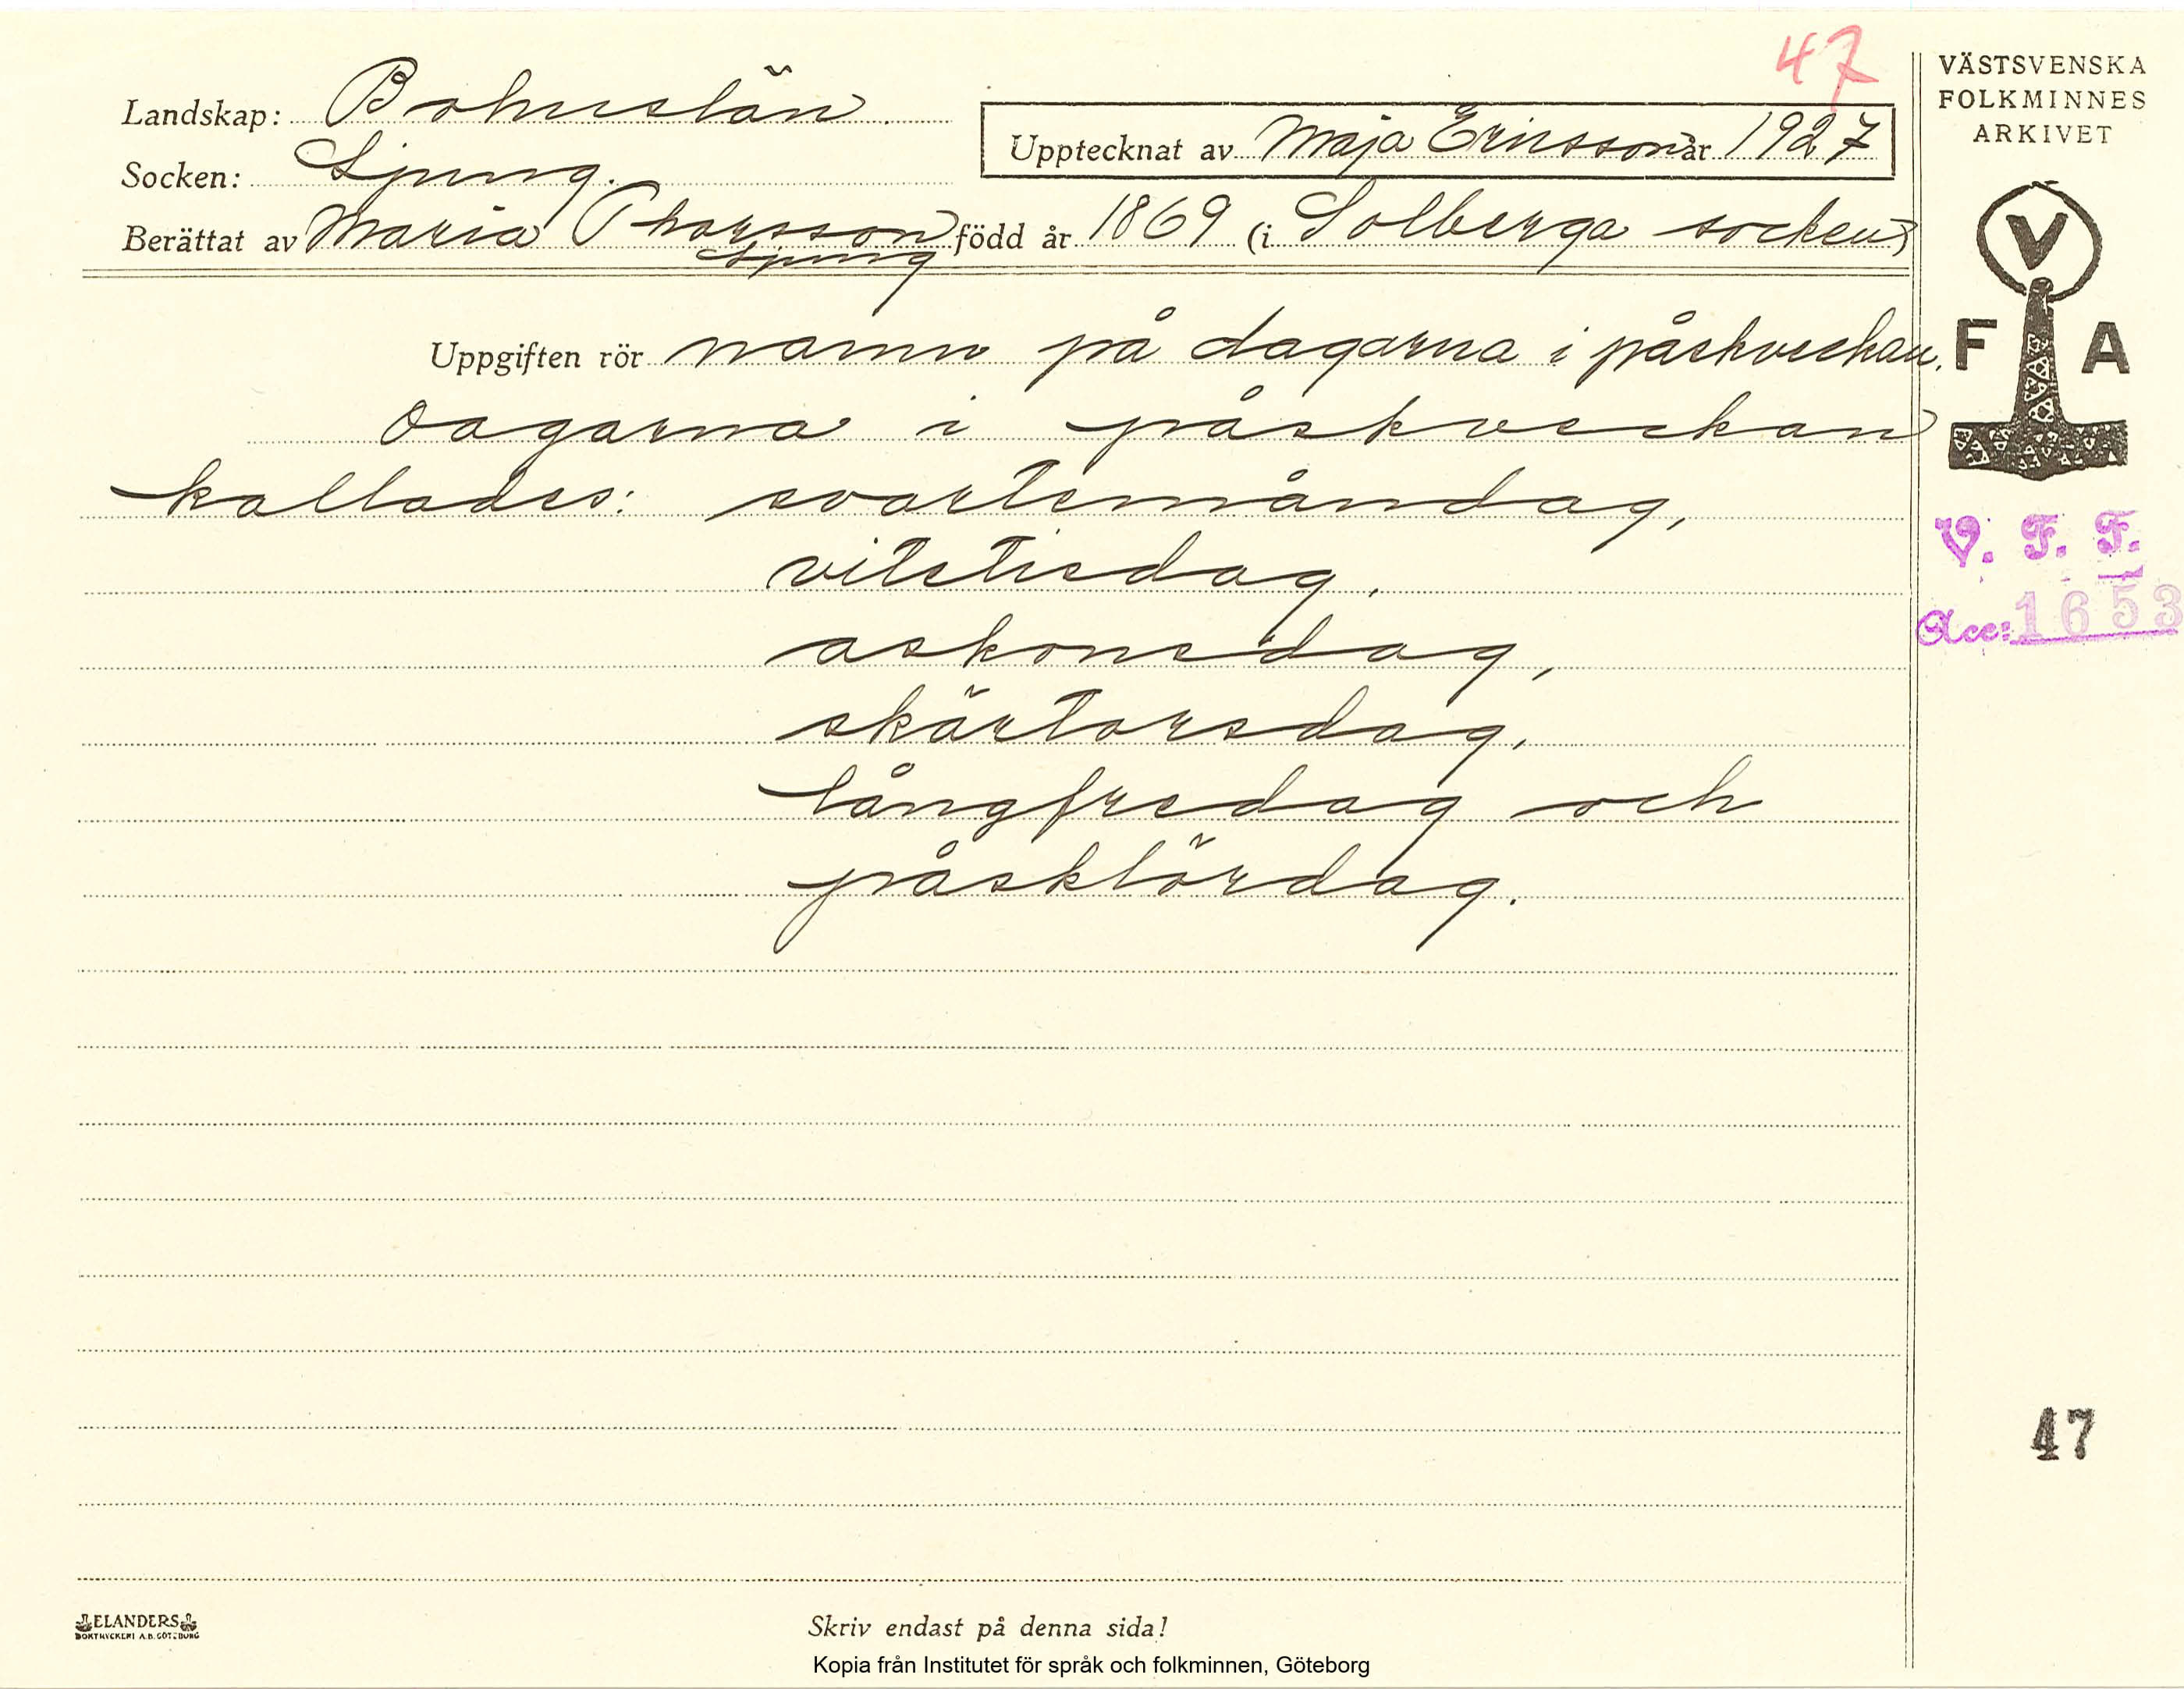 47
VÄSTSVENSKA
FOLKMINNES
ARKIVET
Landskap: Bohuslän.
Upptecknat av Maja Ericsson år 1927
Socken: Ljung.
Berättat av Maria Thorsson född år 1869 (i Solberga socken)
Ljung
V
F A
Uppgiften rör namn på dagarna i påskveckan.
Dagarna i påskveckan
kallades: svartemåndag,
vitetisdag,
askonsdag,
skärtorsdag,
långfredag och
påsklördag.
V. F. F.
Acc: 1653
47
ELANDERS
BOKTRYCKERI A.B. GÖTEBORG
Skriv endast på denna sida!
Kopia från Institutet för språk och folkminnen, Göteborg